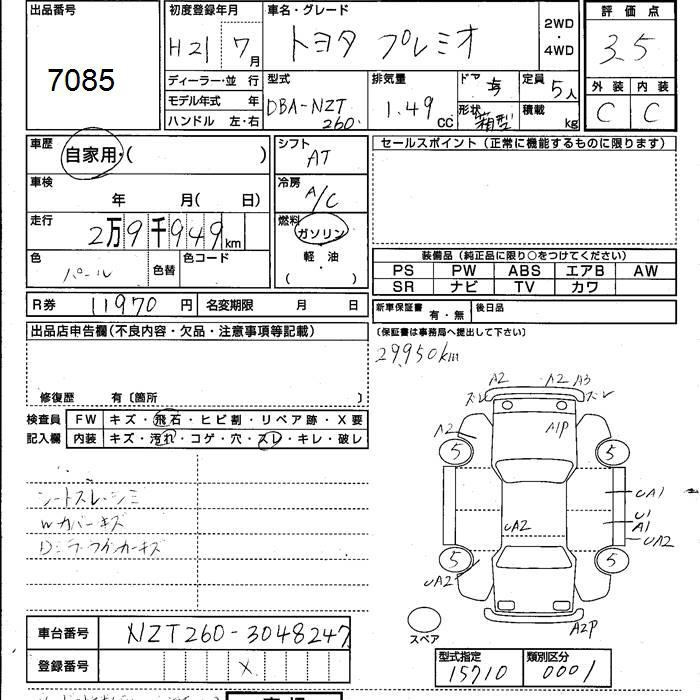 出品番号
7085
初度登録年月
H21 7月
車名・グレード
トヨタ プレミオ
2WD
・
4WD
評価点
3.5
外装 内装
C C
ディーラー・並行
モデル年式 年
ハンドル 左・右
型式
DBA-NZT
260
排気量
1.49
cc
ドア
形状
箱型
定員
5人
積載
kg
車歴
自家用・( )
車検
年 月( 日)
走行
2万9千949km
色
パール
色替
色コード
シフト
AT
冷房
A/C
燃料
ガソリン
軽・油
( )
セールスポイント(正常に機能するものに限ります)
装備品(純正品に限り○をつけてください)
PS PW ABS エアB AW
SR ナビ TV カワ
新車保証書
有・無
後日品
(保証書は事務局へ提出して下さい)
R券 11970 円 名変期限 月 日
出品店申告欄(不良内容・欠品・注意事項等記載)
修復歴 有〔箇所 〕
29950km
検査員
記入欄
FW キズ・飛石・ヒビ割・リペア跡・X要
内装 キズ・汚れ・コゲ・穴・スレ・キレ・破レ
シートスレ・シミ
Wカバーキズ
A2 A2 A3
ズレ ズレ
A2 A1P
5 5
UA1
U1
A1
UA2 UA2
5 5
UA2
A2P
スペア
車台番号 NZT260-3048247
登録番号 X
型式指定 類別区分
15710 0001